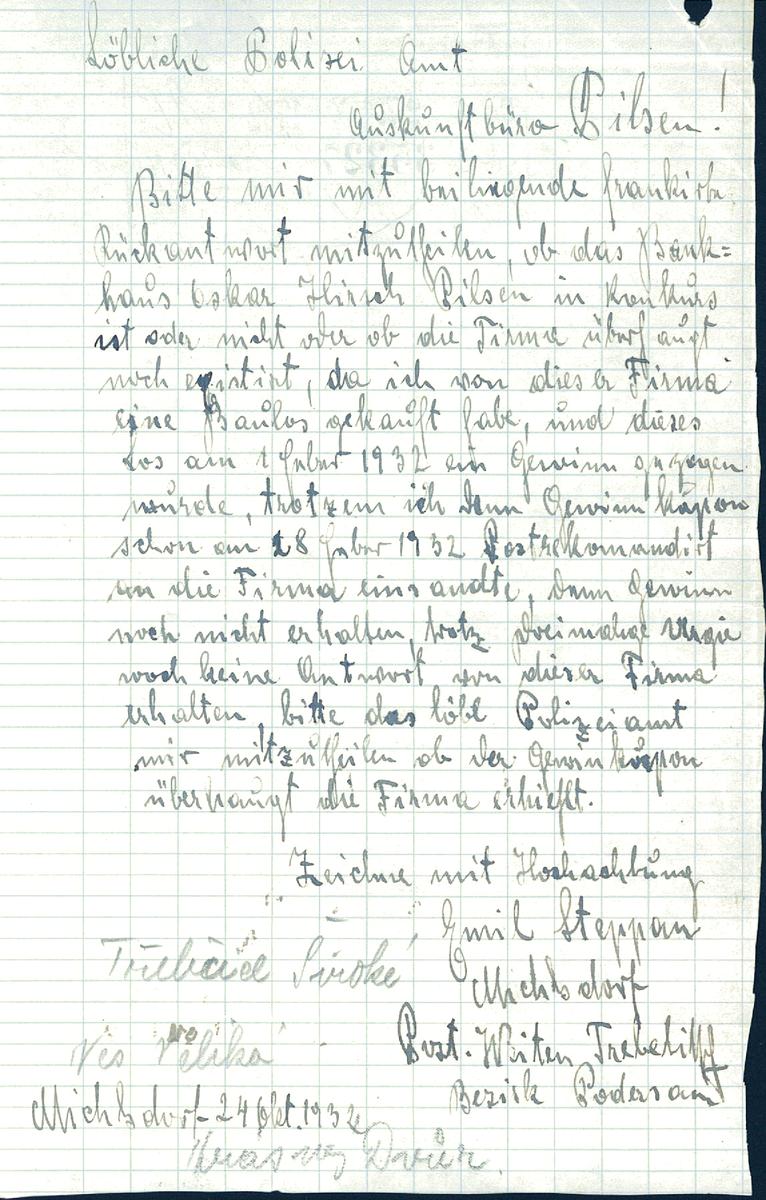 Löbliche Polizei Amt
Auskunftbüro Pilsen!
Bitte mir mit beiliegende frankirte
Rückantwort mitzutheilen, ob das Bank=
haus Oskar Hirsch Pilsen in Konkurs
ist oder nicht oder ob die Firma überhaupt
noch existirt, da ich von dieser Firma
eine Baulos gekauft habe, und dieses
Los am 1 Feber 1932 ein Gewinn gezogen
wurde, trotzem ich denn Gewinn kupon
schon am 28 Feber 1932 Postrekomandirt
an die Firma einsandte, denn Gewinn
noch nicht erhalten, trotz dreimalige Urgie
noch keine Antwort von dieser Firma
erhalten, bitte das löbl Polizeiamt
mir mitzutheilen ob der Gewinkupon
überhaupt die Firma erhielt.
Zeichne mit Hochachtung
Emil Steppan
Michlsdorf
Post. Weiten Trebetitsch
Bezirk Podersam
Široké
Ves Veliká
Michlsdorf 24 Okt. 1932
Krásný Dvůr.